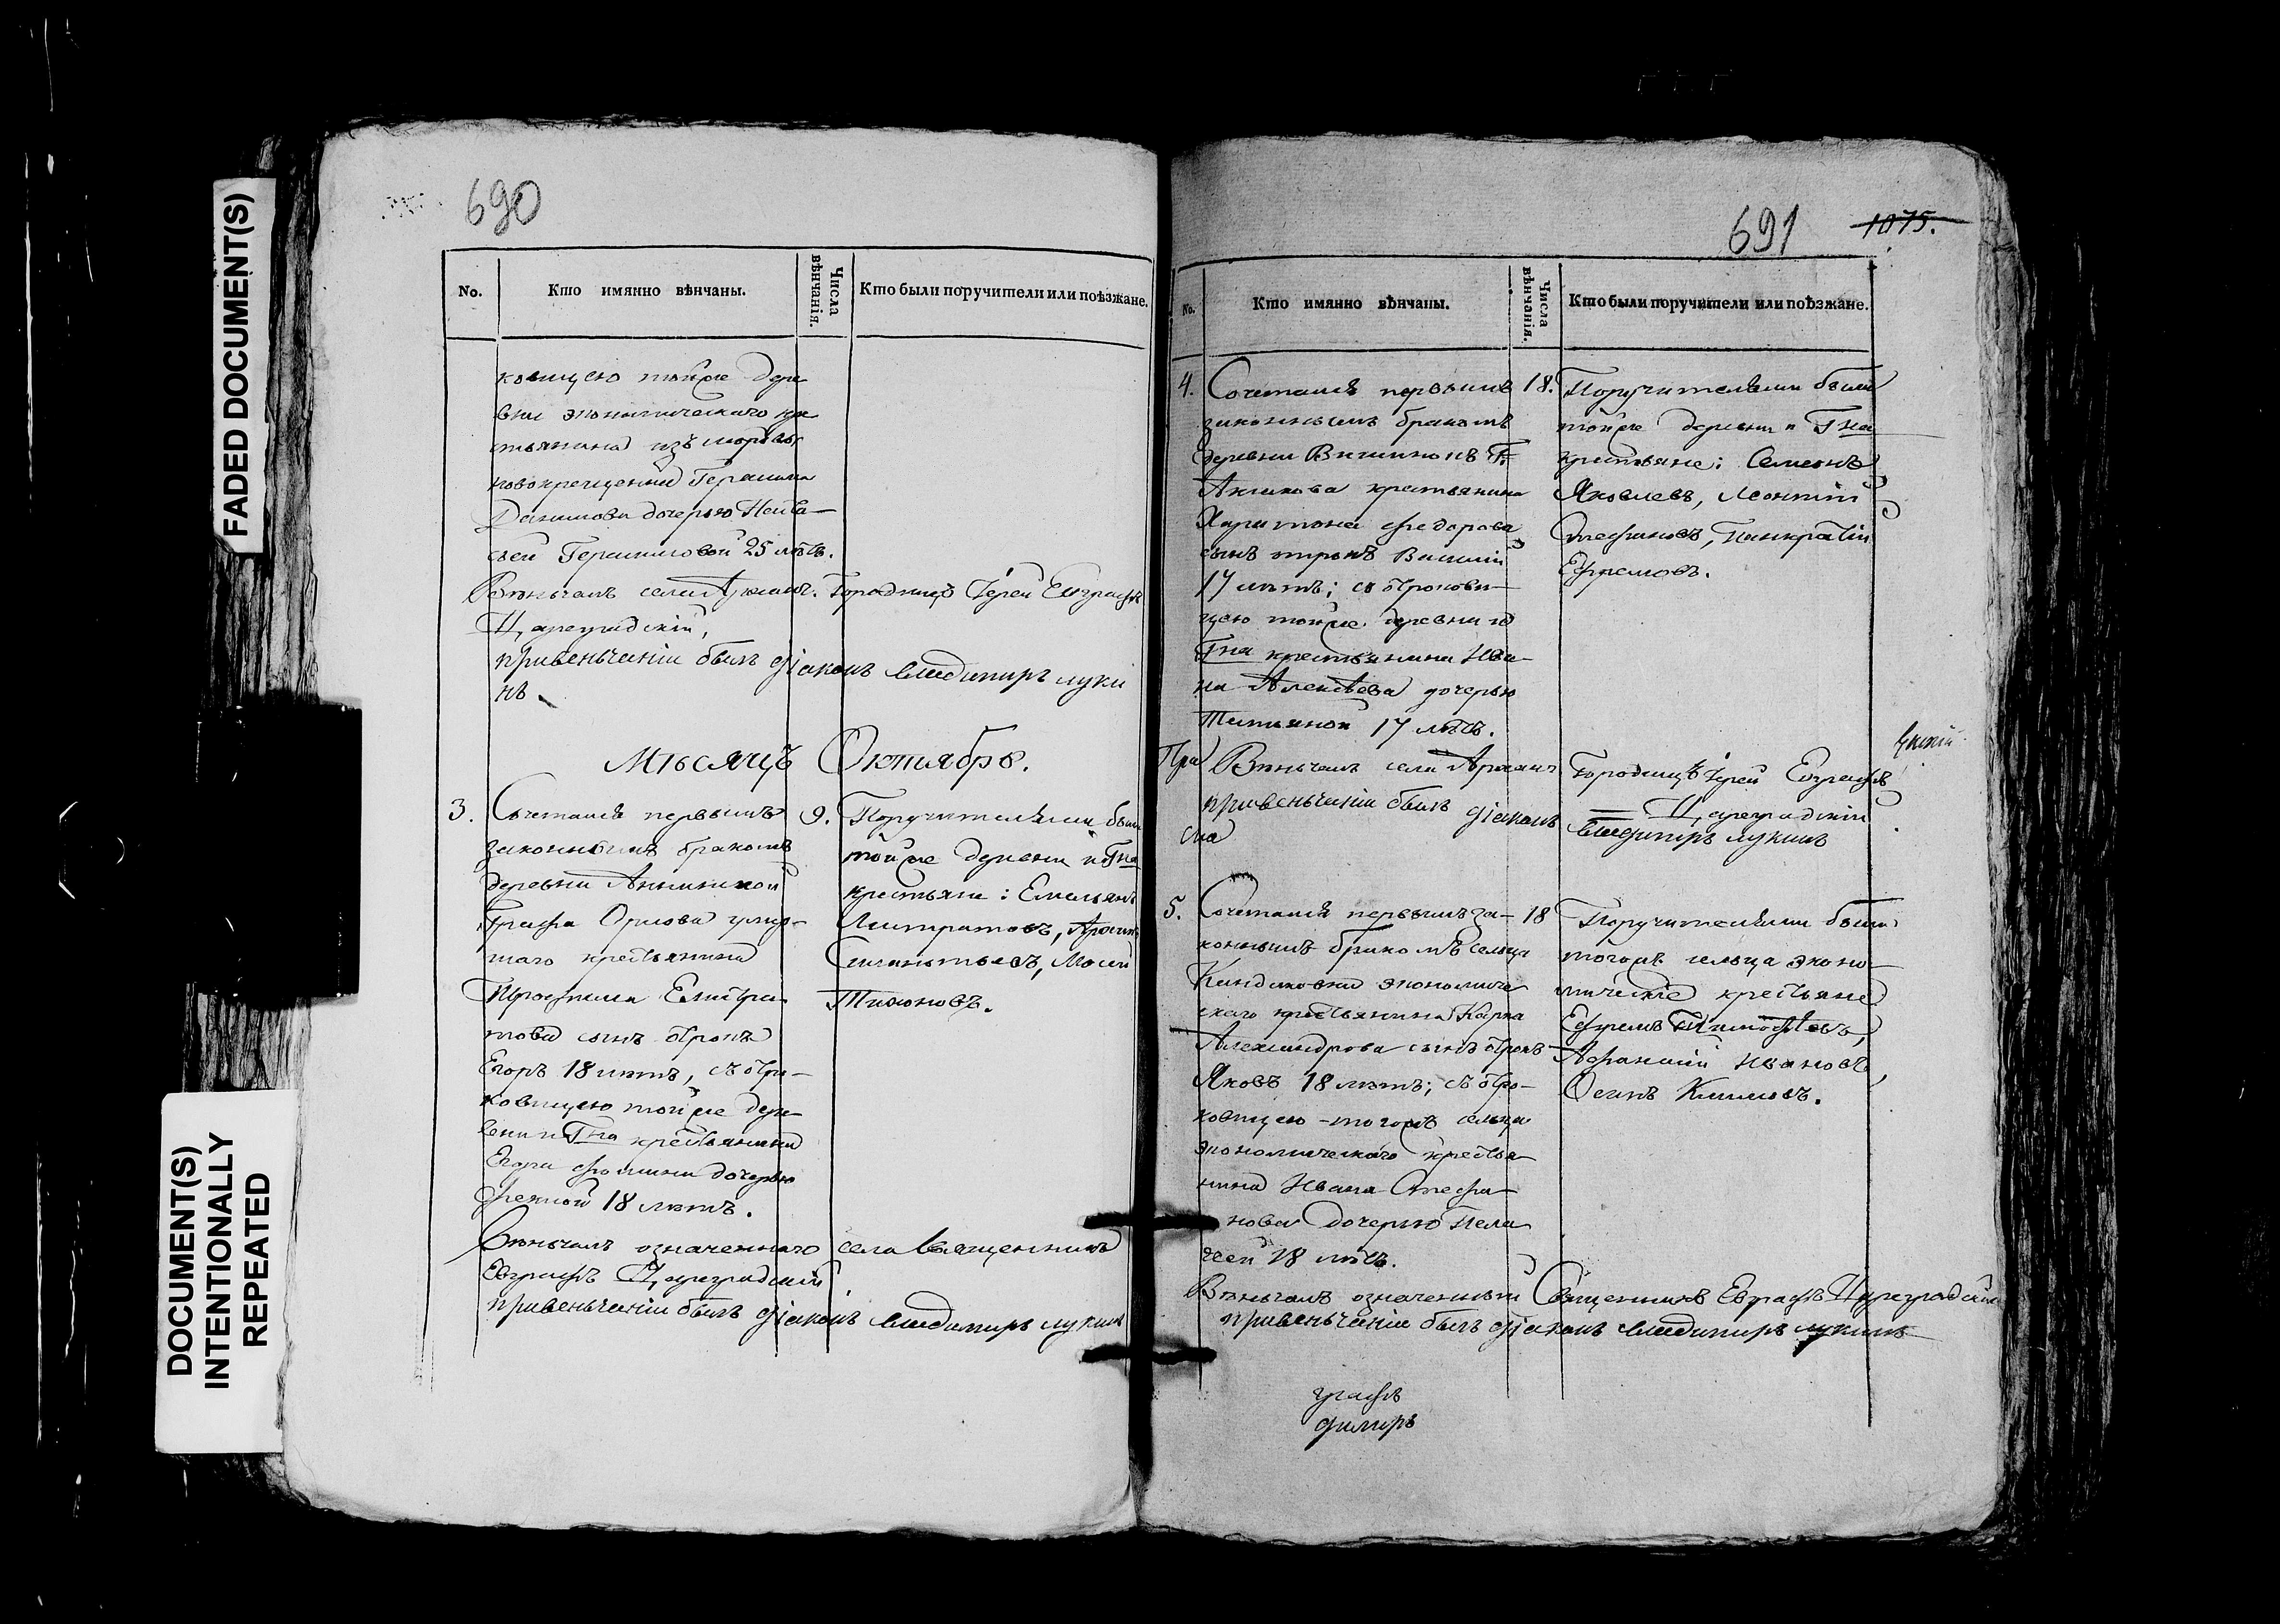 FADED DOCUMENT(S)
DOCUMENT(S)
INTENTIONALLY
REPEATED
690
No.
Кто имянно вѣнчаны.
Числа вѣнчанія.
Кто были поручители или поѣзжане.
ковицею тойже дере
вни экономическаго кре
стьянина изъ мордвы
новокрещенныхъ Герасима
Данилова дочерью Наста
сьей Герасимовой 25 лѣтъ.
Вѣнчалъ села Городищъ Іерей Евграфъ
Цареградскій,
привенчаніи былъ діаконъ владимиръ луки
нъ.
Мѣсяцъ Октябрь.
3.
Сочетался первымъ
законнымъ бракомъ
деревни Аннинкой
Графа Орлова
крестьянина
сынъ отрокъ
Егоръ 18 лѣтъ, съ отро-
ковицею тойже дере
вни и Гна крестьянина
Егора Фомина дочерью
Феклой 18 лѣтъ.
9.
Поручителями были
тойже деревни и Гна
крестьяне: Емельянъ
Мосей
Тихоновъ.
Вѣнчалъ означеннаго села Священникъ
Евграфъ Цареградскій
привенчаніи былъ діаконъ владимиръ лукинъ
691
1075.
No.
Кто имянно вѣнчаны.
Числа вѣнчанія.
Кто были поручители или поѣзжане.
4.
Сочетался первымъ
законнымъ бракомъ
деревни
крестьянина
Харитона Федорова
сынъ отрокъ Василій
17 лѣтъ; съ отрокови-
цею тойже деревни и
Гна крестьянина Ива-
на Алексѣева дочерью
Татьяной 17 лѣтъ.
18.
Поручителями были
тойже деревни и Гна
крестьяне: Семенъ
Яковлевъ, Леонтій
Стефановъ, Панкратій
Ефремовъ.
Вѣнчалъ села Городищъ Іерей Евграфъ
Цареградскій
привенчаніи былъ діаконъ владимиръ лукинъ
5.
Сочетался первымъ за-
коннымъ бракомъ сельца
Киндяковки экономиче
скаго крестьянина Карпа
Александрова сынъ отрокъ
Яковъ 18 лѣтъ; съ отро-
ковицею тогожъ сельца
экономическаго крестья-
нина Ивана Стефа-
нова дочерью Пела
геей 18 лѣтъ.
18
Поручителями были
тогожъ сельца эконо-
мические крестьяне
Ефремъ Тимофѣевъ,
Афанасій Ивановъ,
Осипъ Климовъ.
Вѣнчалъ означенный Священникъ Евграфъ Цареградскій
привенчаніи былъ діаконъ владимиръ лукинъ
графъ
димиръ